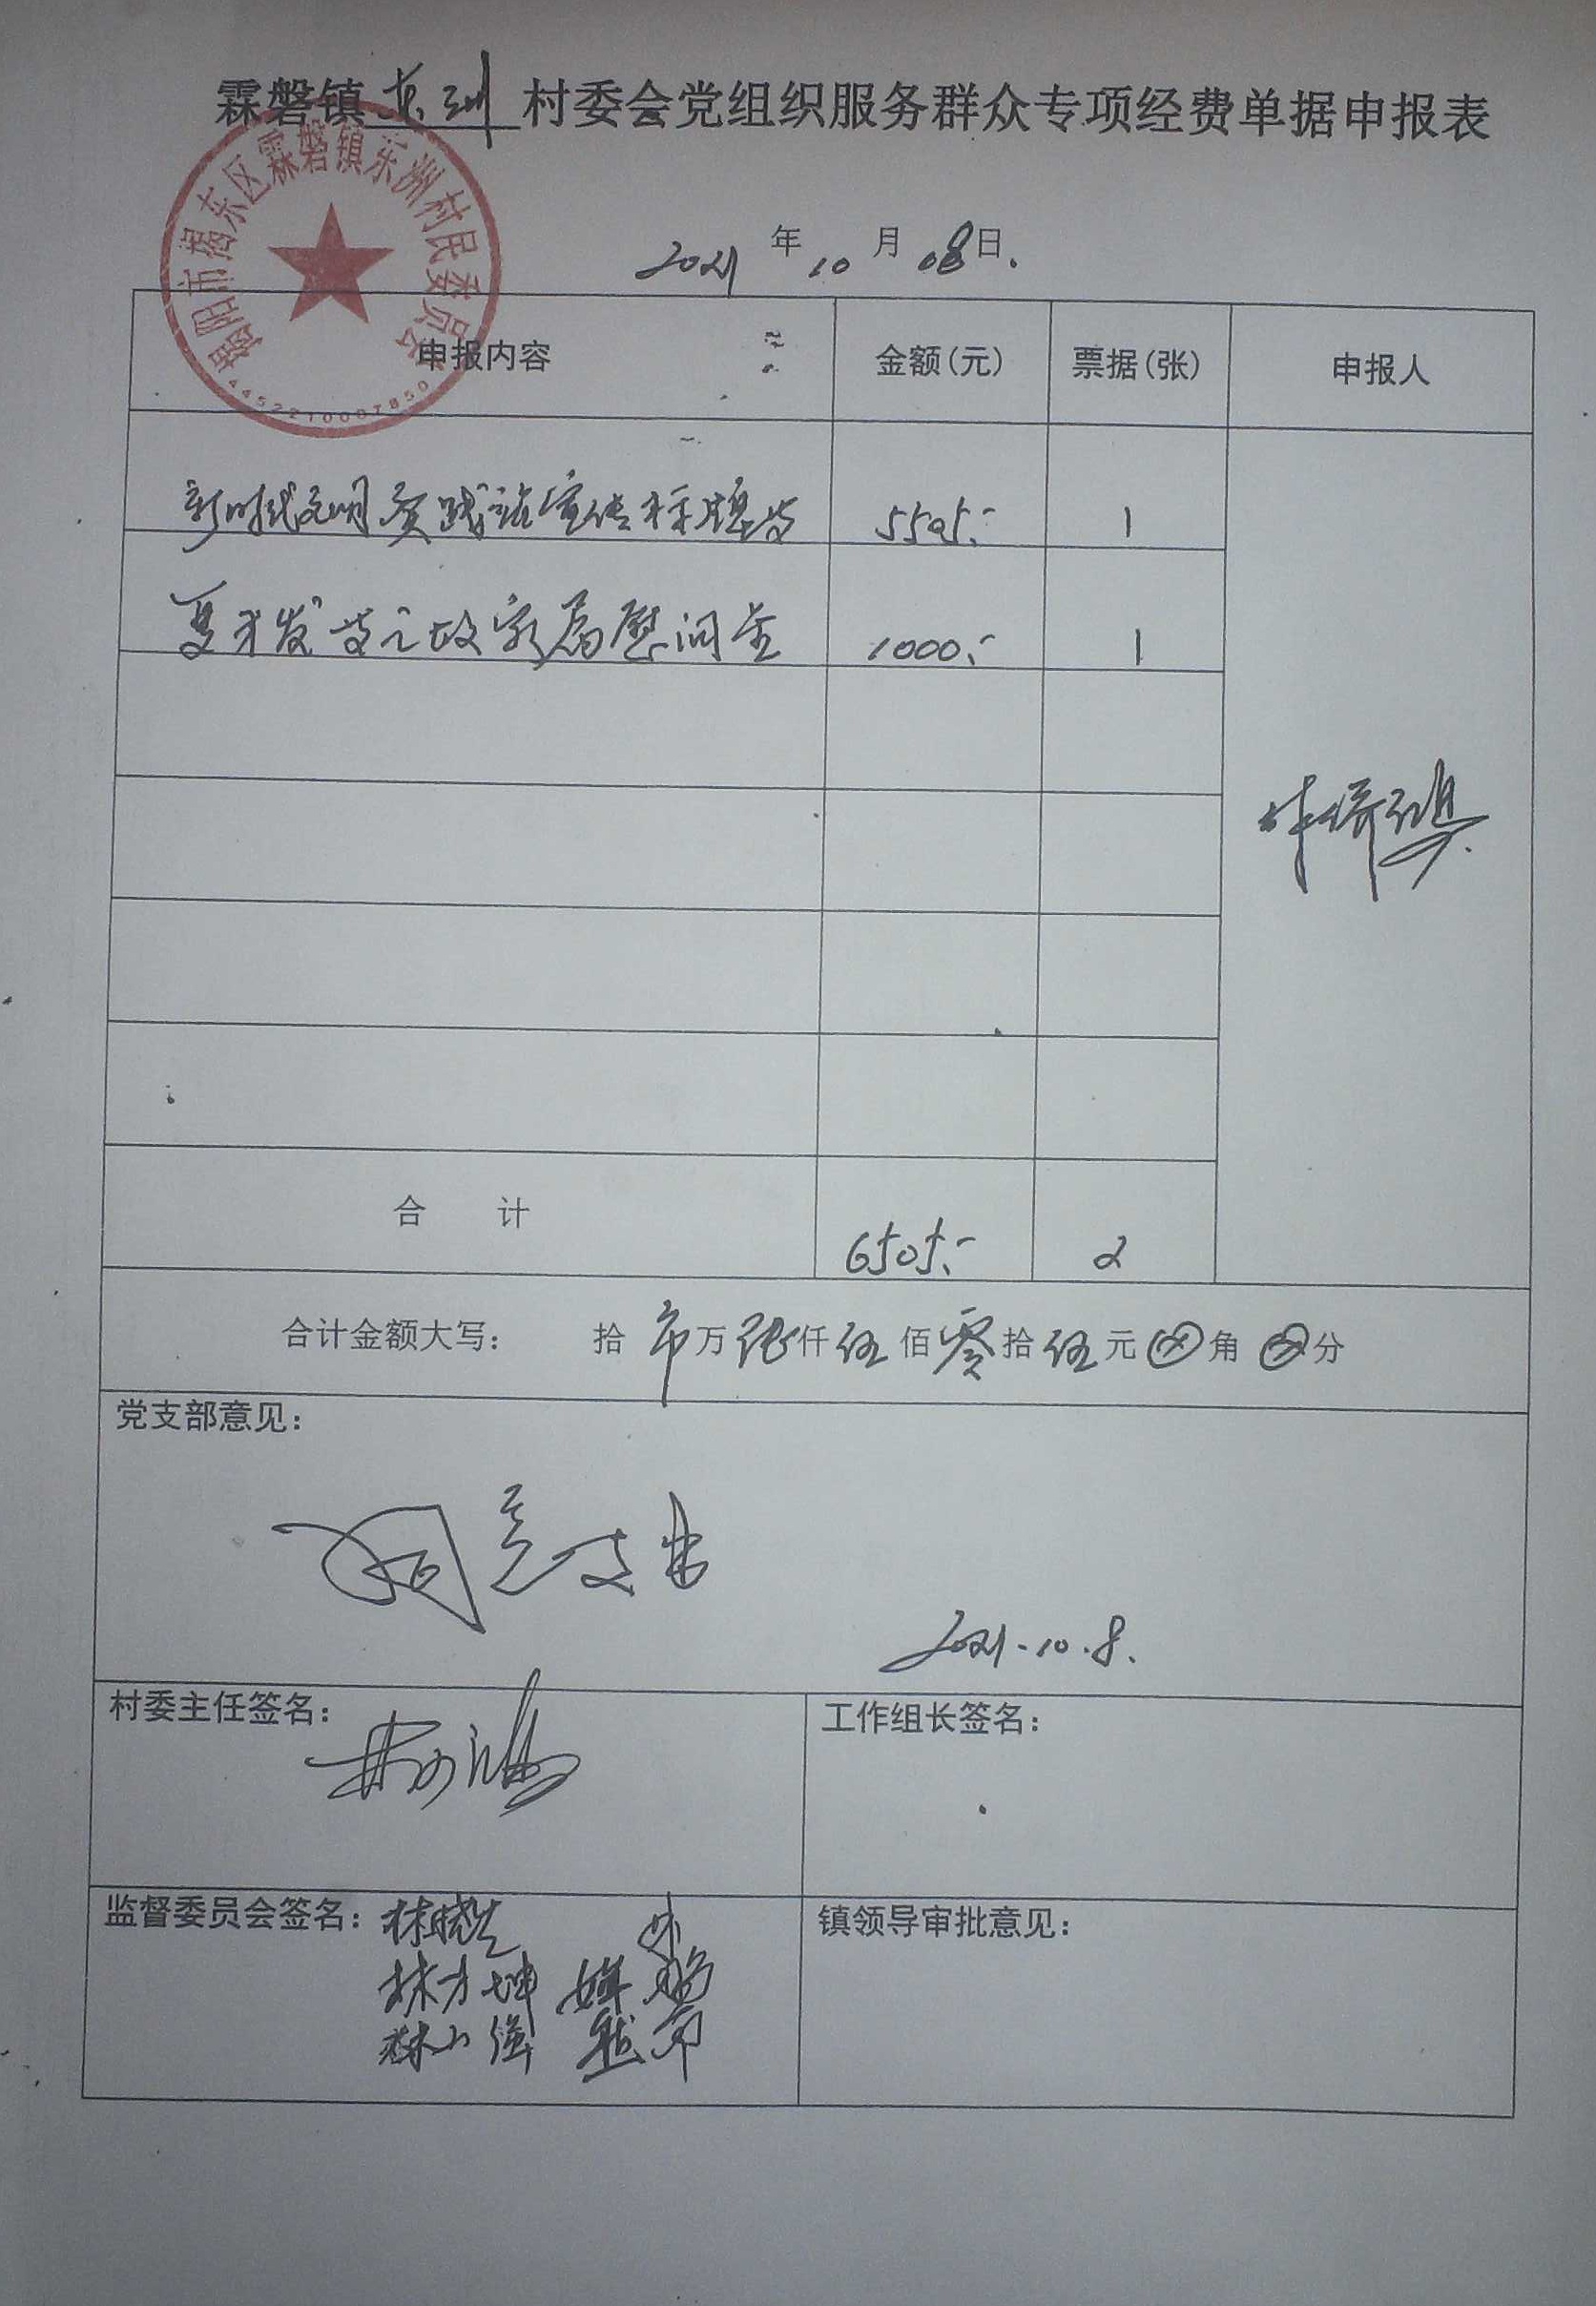 霖磐镇东洲村委会党组织服务群众专项经费单据申报表
揭阳市揭东区霖磐镇东洲村民委员会
4452210007850
2021年10月08日
申报内容 金额(元) 票据(张) 申报人
新时代文明实践站宣传标牌等 5505.- 1
故家属慰问金 1000.- 1
合 计 6505.- 2
合计金额大写: 拾 万 陆仟伍佰零拾伍元 角 分
党支部意见:
同意支出
2021.10.8.
村委主任签名:
工作组长签名:
监督委员会签名:
林方坤
镇领导审批意见: